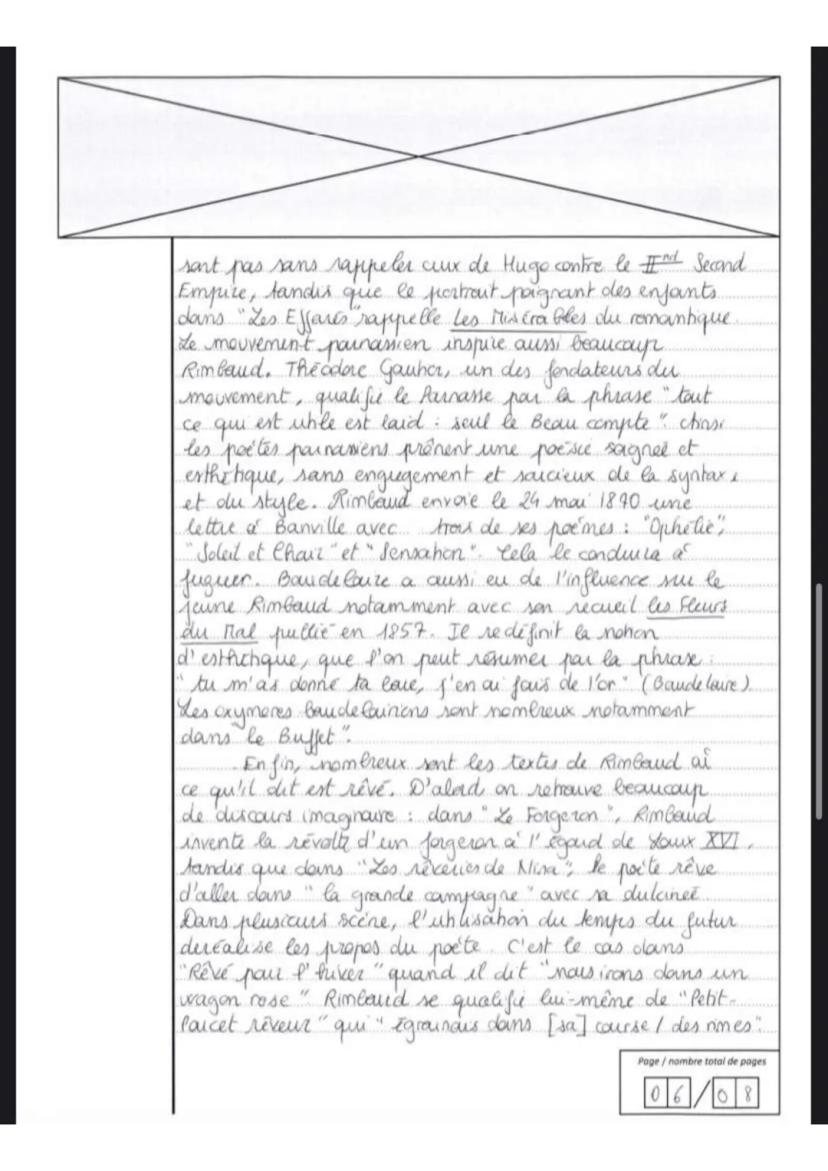 sont pas sans rappeler ceux de Hugo contre le IInd Second
Empire, tandis que le portrait poignant des enfants
dans "Les Effarés" rappelle Les Misérables du romantique.
Le mouvement parnassien inspire aussi beaucoup
Rimbaud. Théodore Gautier, un des fondateurs du
mouvement, qualifie le Parnasse par la phrase "tout
ce qui est utile est laid : seul le Beau compte". Ainsi
les poètes parnassiens prônent une poésie soignée et
esthétique, sans engagement et soucieux de la syntaxe
et du style. Rimbaud envoie le 24 mai 1870 une
lettre à Banville avec trois de ses poèmes : "Ophélie",
"Soleil et Chair" et "Sensation". Cela le conduira à
fuguer. Baudelaire a aussi eu de l'influence sur le
jeune Rimbaud notamment avec son recueil les Fleurs
du Mal publié en 1857. Il redéfinit la notion
d'esthétique, que l'on peut résumer par la phrase :
"tu m'as donné ta boue, j'en ai fais de l'or" (Baudelaire).
Les oxymores baudelairiens sont nombreux notamment
dans "le Buffet".
Enfin, nombreux sont les textes de Rimbaud où
ce qu'il dit est rêvé. D'abord on retrouve beaucoup
de discours imaginaire : dans "Le Forgeron", Rimbaud
invente la révolte d'un forgeron à l'égard de Louix XVI,
tandis que dans "Les rêveries de Nina", le poète rêve
d'aller dans "la grande campagne" avec sa dulcinée.
Dans plusieurs scène, l'utilisation du temps du futur
deréalise les propos du poète. C'est le cas dans
"Rêvé pour l'hiver" quand il dit "nous irons dans un
wagon rose". Rimbaud se qualifie lui-même de "Petit-
Poucet rêveur" qui "égrainais dans [sa] course / des rimes".
Page / nombre total de pages
06/08